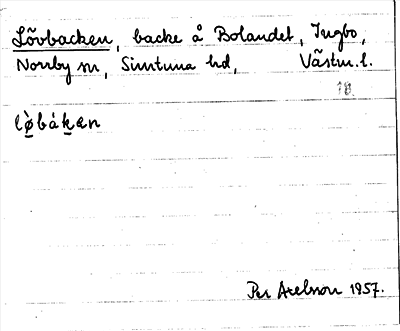 Lövbacken, backe å Bolandet, Ingbo,
Norrby sn, Simtuna hd, Västm. l.
18.
lø̀bákæn
Per Axelsson 1957.